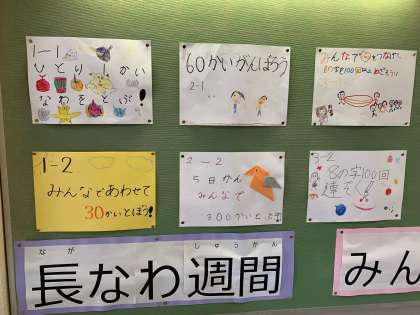 1-1
ひとり1かい
なわをとぶ!
60かいがんばろう
2-1
みんなで
1-2
みんなであわせて
30かいとぼう!
2-2
5日かん
みんなで
300かいとぶ
3-2
8の字100回
連ぞく!!
なが しゅうかん
長なわ週間
みん